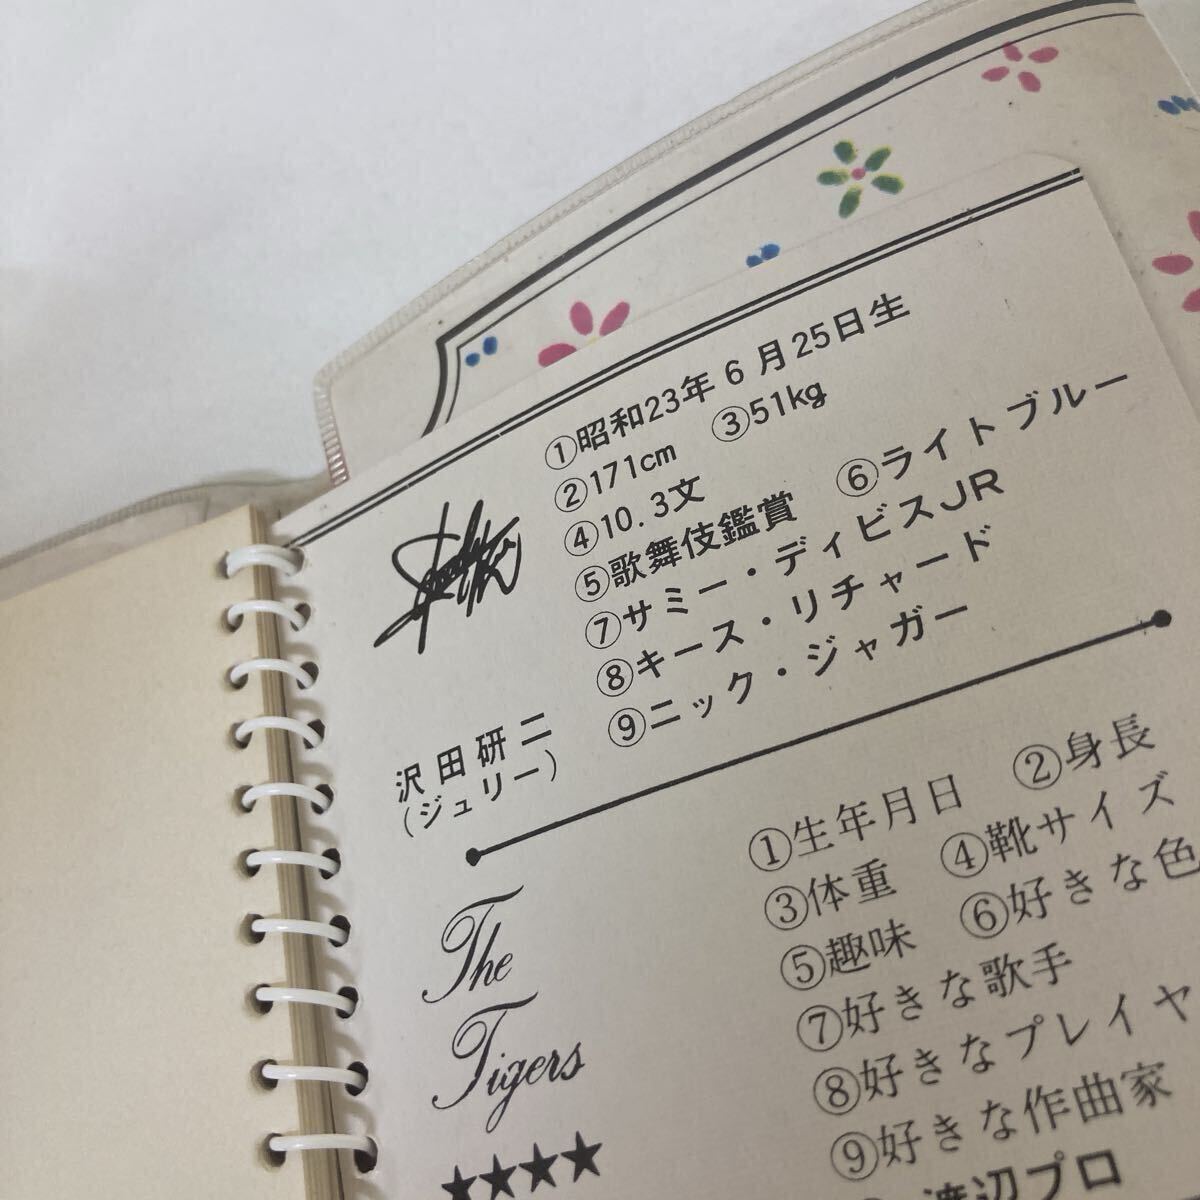 ①昭和23年6月25日生
②171cm ③51kg
④10.3文
⑤歌舞伎鑑賞 ⑥ライトブルー
⑦サミー・ディビスJR
⑧キース・リチャード
⑨ニック・ジャガー
沢田研二
(ジュリー)
The
Tigers
★★★★
①生年月日 ②身長
③体重 ④靴サイズ
⑤趣味 ⑥好きな色
⑦好きな歌手
⑧好きなプレイヤ
⑨好きな作曲家
渡辺プロ